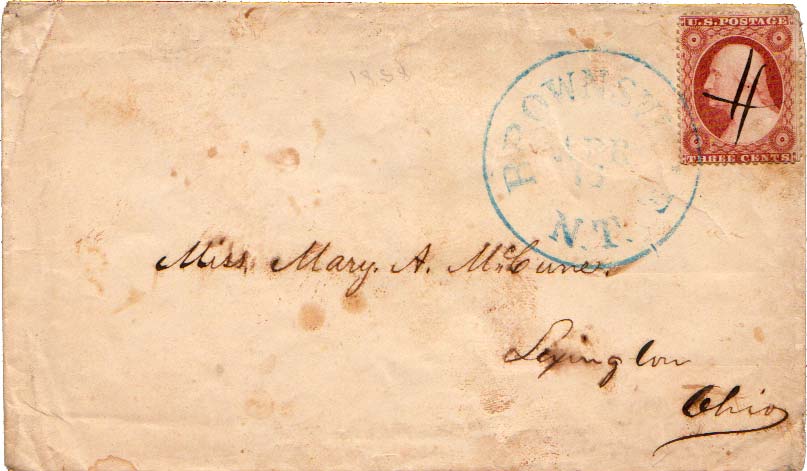 U.S. POSTAGE
THREE CENTS
BROWNSVILLE
APR
N.T.
Miss. Mary. A. McCune.
Lexington
Ohio